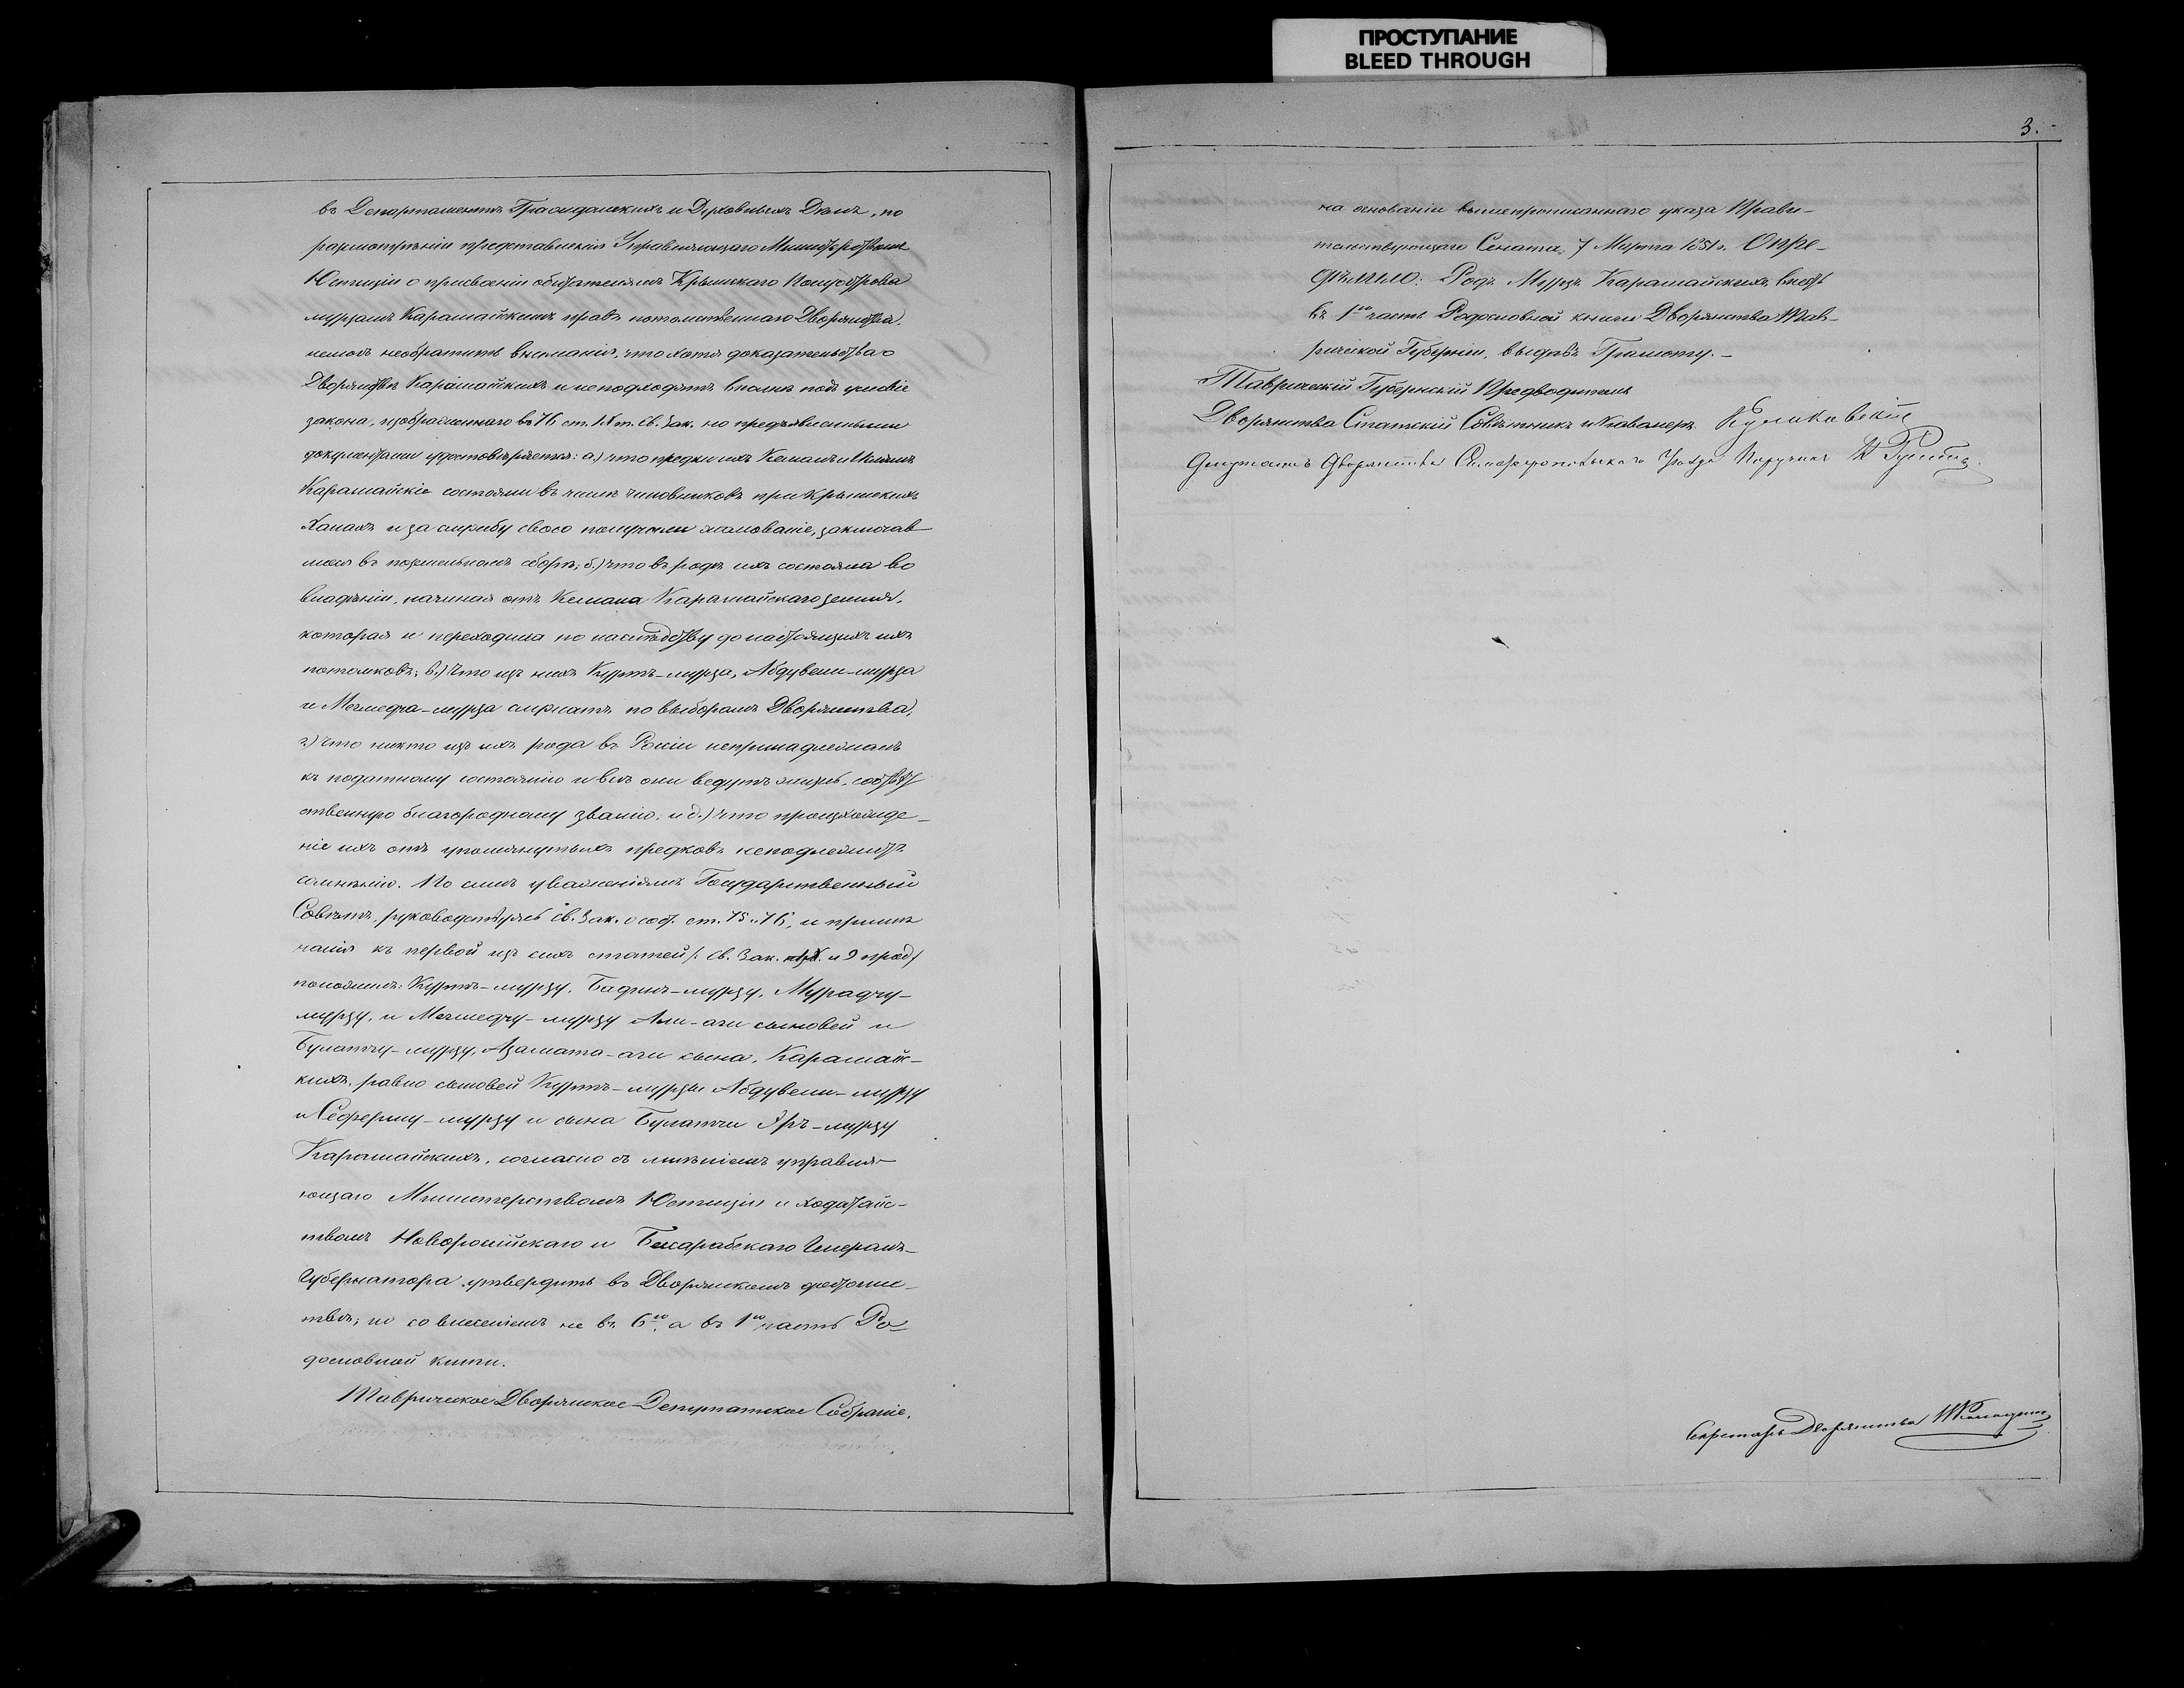 ПРОСТУПАНИЕ
BLEED THROUGH
въ Департаментѣ Гражданскихъ и Духовныхъ Дѣлъ, по
разсмотрѣніи представленія Управляющаго Министерствомъ
Юстиціи о присвоеніи обитателямъ Крымскаго Полуострова
мурзамъ Карашайскимъ правъ потомственнаго Дворянства,
немогъ необратить вниманія, что хотя доказательства о
Дворянствѣ Карашайскихъ и неподходятъ вполнѣ подъ условіе
закона, изображеннаго въ 76 ст. IX т. Св. Зак. но предъявленными
документами удостовѣряется: а.) что предки ихъ Кемалъ и
Карашайскіе состояли въ числѣ чиновниковъ при Крымскихъ
Ханахъ и за службу свою получали жалованіе, заключав
шееся въ поземельномъ сборѣ; б.) что въ родѣ ихъ состояла во
владѣніи, начиная отъ Кемала Карашайскаго земля,
которая и переходила по наслѣдству до настоящихъ ихъ
потомковъ; в.) Что изъ нихъ Куртъ-мурза, Абдувели-мурза
и Мегмедча-мурза служатъ по выборамъ Дворянства,
г.) что никто изъ ихъ рода въ Россіи непринадлежалъ
къ податному состоянію и всѣ они ведутъ жизнь, соотвѣт
ственную благородному званію, и д.) что происхожде-
ніе ихъ отъ упомянутыхъ предковъ неподлежитъ
сомнѣнію. По симъ уваженіямъ Государственный
Совѣтъ, руководствуясь Св. Зак. о сост. ст. 75 и 76, и примѣ
чанія къ первой изъ сихъ статей /: Св. Зак. т. IX. и 9 прод/
положилъ: Куртъ-мурзу, Бадикъ-мурзу, Мурадчу-
мурзу, и Мегмедчу-мурзу Али-аги сыновей и
Булатчу-мурзу, Азамата-аги сына, Карашайс-
кихъ, равно сыновей Куртъ-мурзы Абдувели-мурзу
и Сефершу-мурзу и сына Булатчи Эръ-мурзу
Карашайскихъ, согласно съ мнѣніемъ управля-
ющаго Министерствомъ Юстиціи и ходатайс-
твомъ Новороссійскаго и Бессарабскаго Генералъ-
Губернатора утвердить въ Дворянскомъ достоинс-
твѣ, но со внесеніемъ не въ 6ю, а въ 1ю часть Ро-
дословной книги.
Таврическое Дворянское Депутатское Собраніе,
3.
на основаніи вышепрописаннаго указа Прави-
тельствующаго Сената, 7 Марта 1851 г. Опре-
дѣлило: Родъ Мурзъ Карашайскихъ внесть
въ 1ю часть Родословной книги Дворянства Тав-
рической Губерніи, выдавъ Грамоту.-
Таврическій Губернскій Предводитель
Дворянства Статскій Совѣтникъ и Кавалеръ Куликовскій
Депутатъ Дворянства Симферопольскаго Уѣзда Поручикъ
Секретарь Дворянства